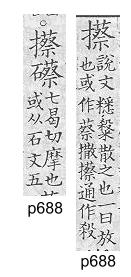 攃
說文散之也一曰放
也或作蔡撒攃通作殺
p688
。攃礤
七曷切摩也
或从石文五
p688